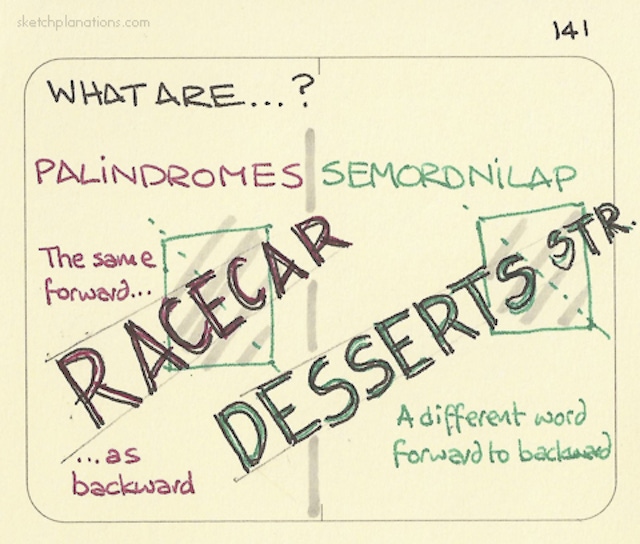 sketchplanations.com
141
WHAT ARE...?
PALiNDROMES
SEMORDNiLAP
The same
forward...
RACECAR
...as
backward
DESSERTS STR.
A different word
forward to backward